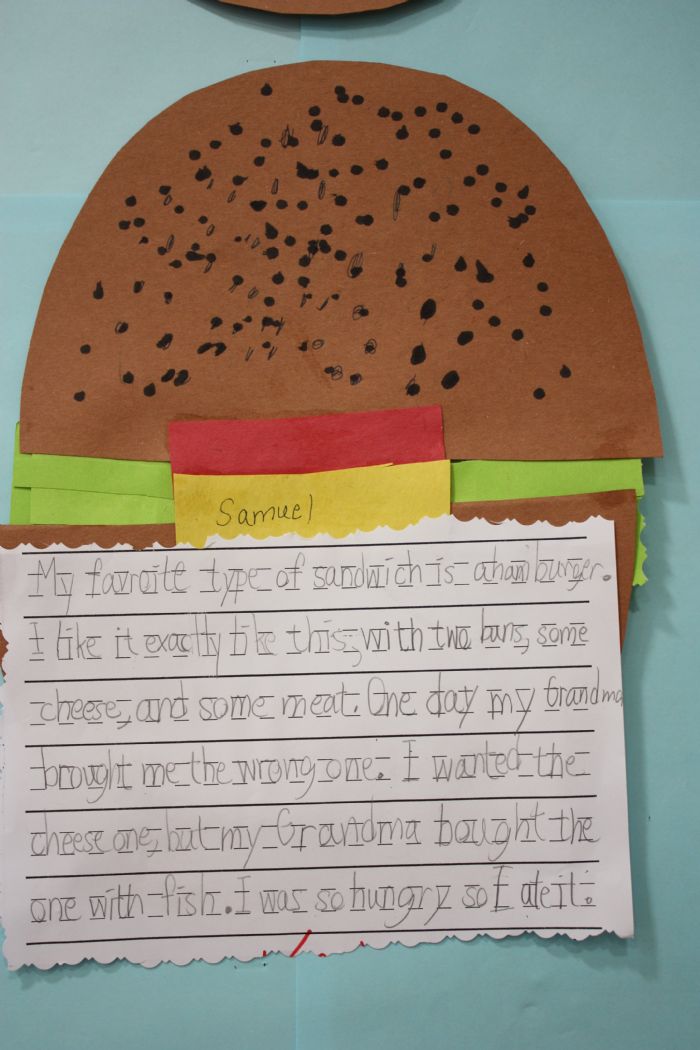 Samuel
My favroite type of sandwich is ahamburger.
I like it exactly like this, with two buns, some
cheese, and some meat. One day my Grandma
brought me the wrong one. I wanted the
cheese one, but my Grandma bought the
one with fish. I was so hungry so I ate it.